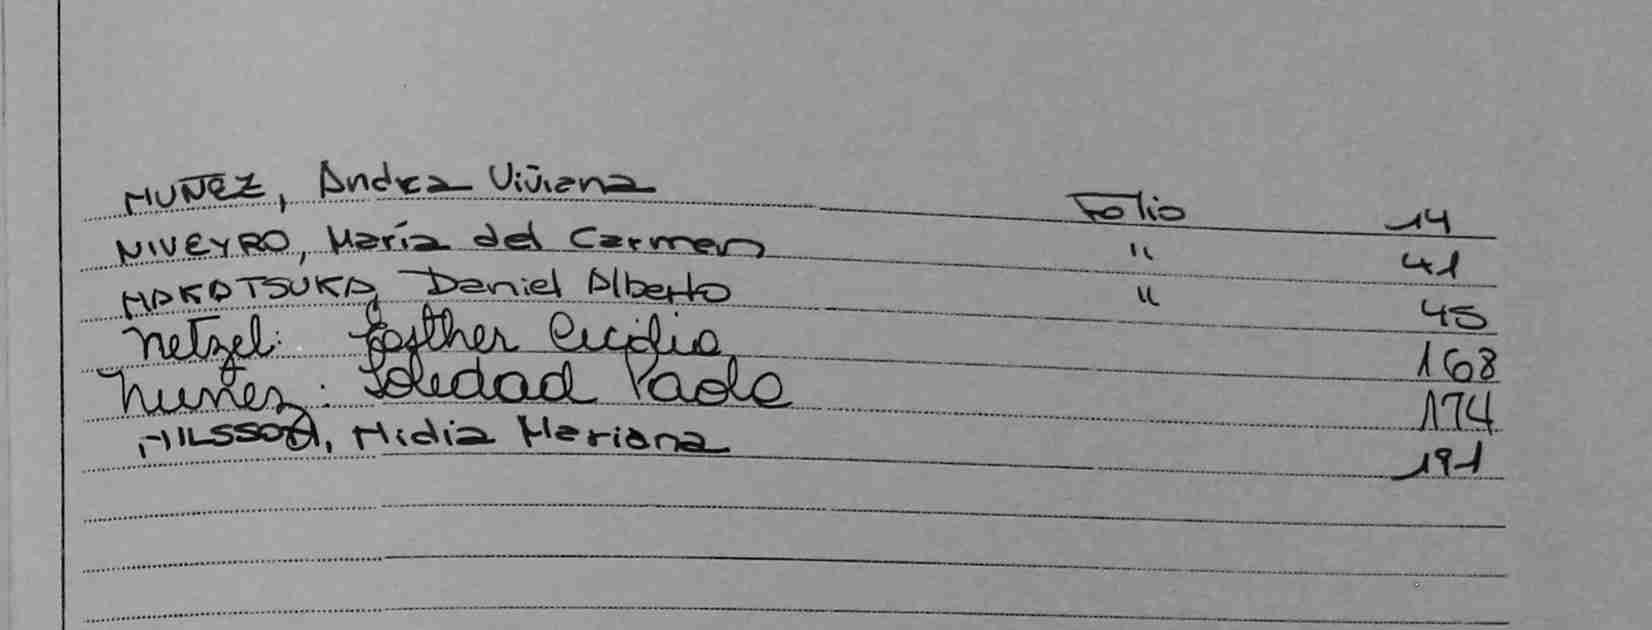 NUÑEZ, Andrea Viviana Folio 14
NIVEYRO, María del Carmen " 41
NAKATSUKA, Daniel Alberto " 45
Netzel: Esther Cecilia 168
Nuñez: Soledad Paola 174
NILSSON, Nidia Mariana 191